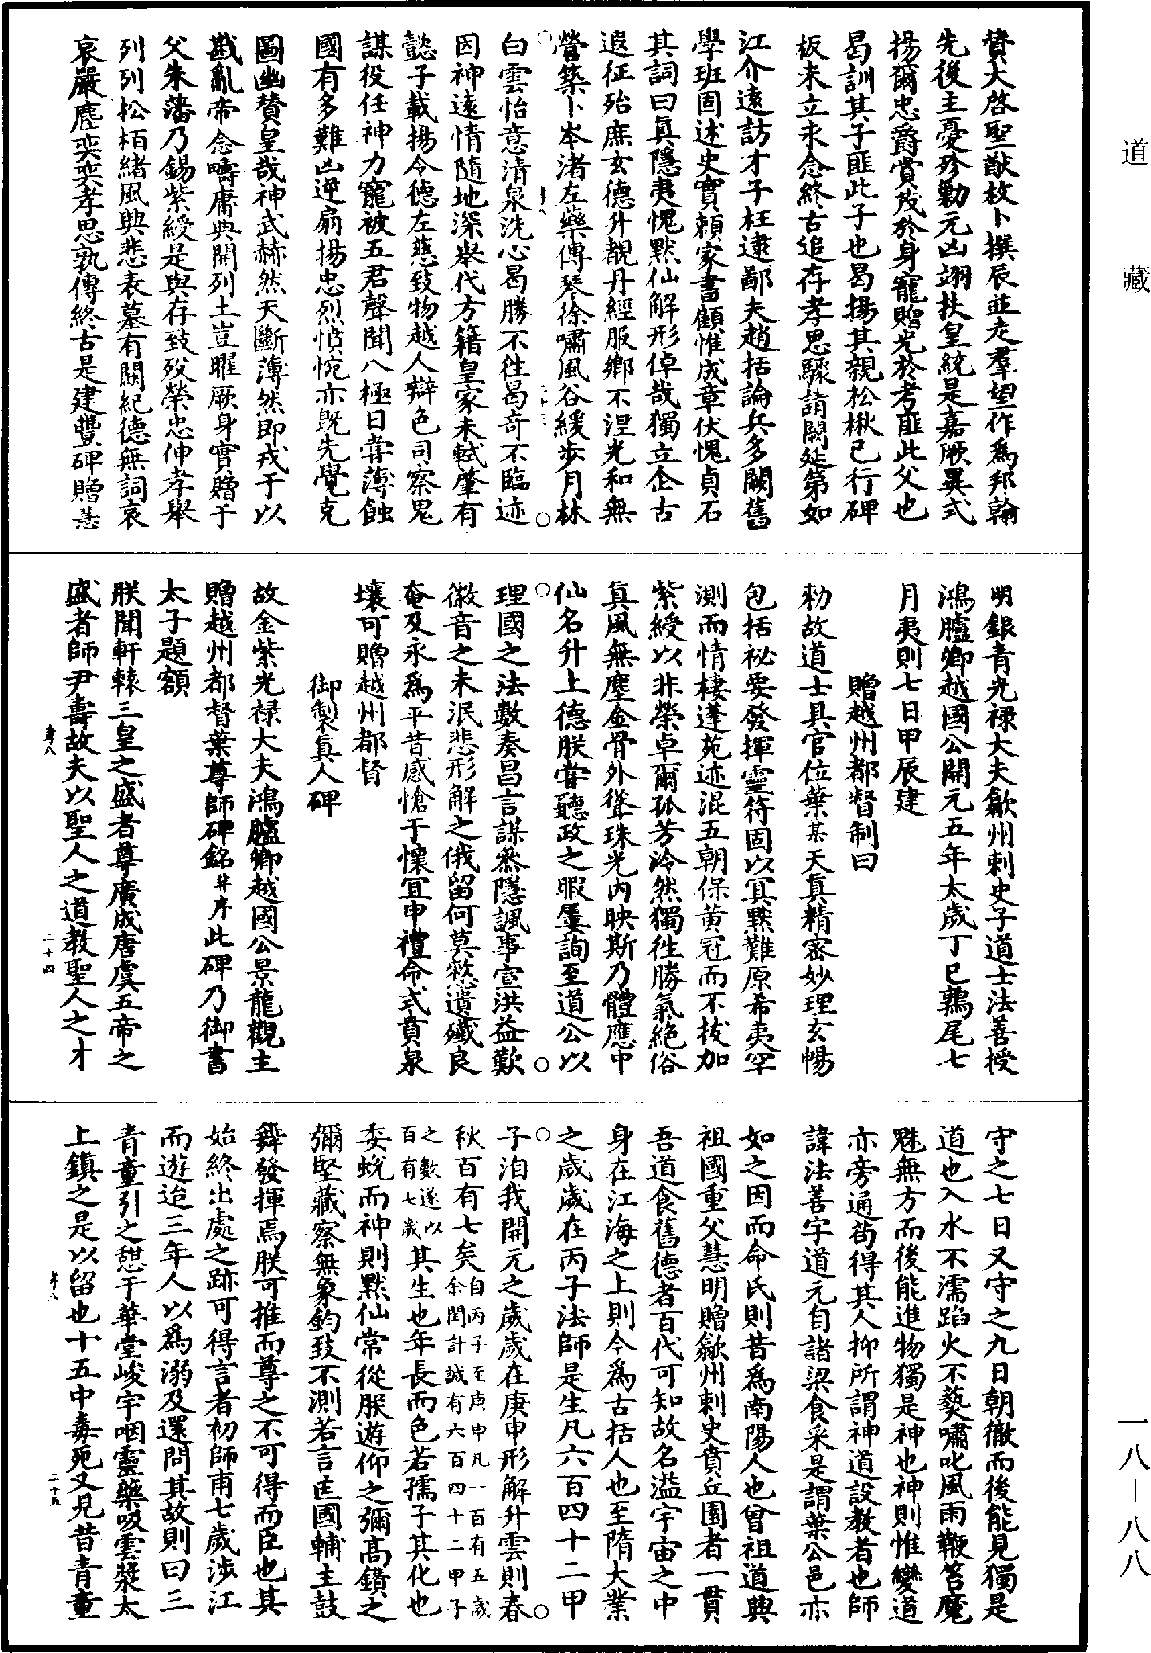 道藏
贊大啓聖猷枚卜撰辰並走羣望作爲邦翰
先後主憂殄勦元凶翊扶皇統是嘉厥異式
揚爾忠爵賞茂於身寵贈光於考匪此父也
曷訓其子匪此子也曷揚其親松楸已行碑
板未立永念終古追存孝思驟請闕延第如
江介遠訪才子枉逮鄙夫趙括論兵多闕舊
學班固述史實賴家書顧惟成章伏愧貞石
其詞曰眞隱夷愧黙仙解形倬哉獨立企古
遐征殆庶玄德升覯丹經服鄉不涅光和無
營築卜岑渚左藥傳琴徐嘯風谷緩步月林
白雲怡意清泉洗心曷勝不往曷奇不臨迹
因神遠情隨地深舉代方籍皇家未軾肇有
懿子載揚令德左慈致物越人辯色司察鬼
謀役任神力寵被五君聲聞八極日嘗薄蝕
國有多難凶逆扇揚忠烈憤惋亦旣先覺克
圖幽贊皇哉神武赫然天斷薄然即戎于以
戡亂帝念疇庸典開列土豈曜厥身實贈于
父朱藩乃錫紫綬是與存致殁榮忠伸孝舉
列列松栢緒風興悲表墓有闕紀德無詞哀
哀嚴塵奕奕孝思孰傳終古是建豐碑贈差
明銀青光禄大夫歙州刺史子道士法善授
鴻臚卿越國公開元五年太歲丁巳鶉尾七
月夷則七日甲辰建
贈越州都督制曰
勅故道士具官位葉某天真精密妙理玄暢
包括祕要發揮靈符固以冥黙難原希夷罕
測而情棲蓬苑迹混五朝保黄冠而不拔加
紫綬以非榮卓爾孤芳泠然獨往勝氣絶俗
真風無塵金骨外聳珠光内映斯乃體應中
仙名升上德朕嘗聽政之暇屢詢至道公以
理國之法數奏昌言謀參隱諷事宣洪益歎
徽音之未泯悲形解之俄留何莫憗遺殲良
奄及永爲平昔感愴于懷宜申禮命式賁泉
壤可贈越州都督
御製真人碑
故金紫光禄大夫鴻臚卿越國公景龍觀主
贈越州都督葉尊師碑銘并序此碑乃御書
太子題額
朕聞軒轅三皇之盛者尊廣成唐虞五帝之
盛者師尹壽故夫以聖人之道教聖人之才
二十四
守之七日又守之九日朝徹而後能見獨是
道也入水不濡蹈火不爇嘯叱風雨鞭笞魔
魅無方而後能進物獨是神也神則惟變道
亦旁通苟得其人抑所謂神道設教者也師
諱法善字道元自諸梁食采是謂葉公邑亦
如之因而命氏則昔爲南陽人也曾祖道興
祖國重父慧明贈歙州刺史賁丘園者一貫
吾道食舊德者百代可知故名溢宇宙之中
身在江海之上則今爲古括人也至隋大業
之歲歲在丙子法師是生凡六百四十二甲
子洎我開元之歲歲在庚申形解升雲則春
秋百有七矣自丙子至庚申凡一百有五歲
余閏計誠有六百四十二甲子
之數遂以
百有七歲其生也年長而色若孺子其化也
委蛻而神則黙仙常從朕遊仰之彌高鑽之
彌堅藏察無象鈞致不測若言匡國輔主鼓
舞發揮焉朕可推而尊之不可得而臣也其
始終出處之跡可得言者初師甫七歲涉江
而遊迨三年人以爲溺及還問其故則曰三
青童引之憇于華堂峻宇咽靈藥吸雲漿太
上鎮之是以留也十五中毒死又見昔青童
二十五
一八—八八